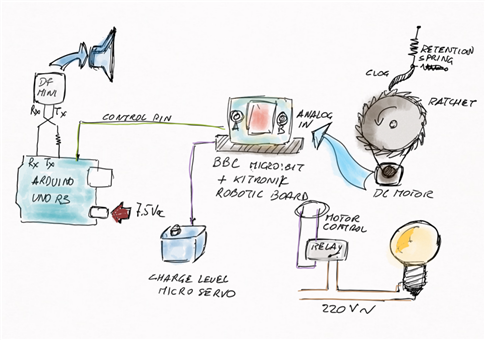 RETENTION
SPRING
CLOG
RATCHET
DF
MINI
Rx
Tx
CONTROL PIN
ANALOG
IN
Rx Tx
ARDUINO
UNO R3
7.5Vdc
BBC MICRO:BIT
+ KITRONIK
ROBOTIC BOARD
DC MOTOR
MOTOR
CONTROL
RELAY
CHARGE LEVEL
MICRO SERVO
220V~